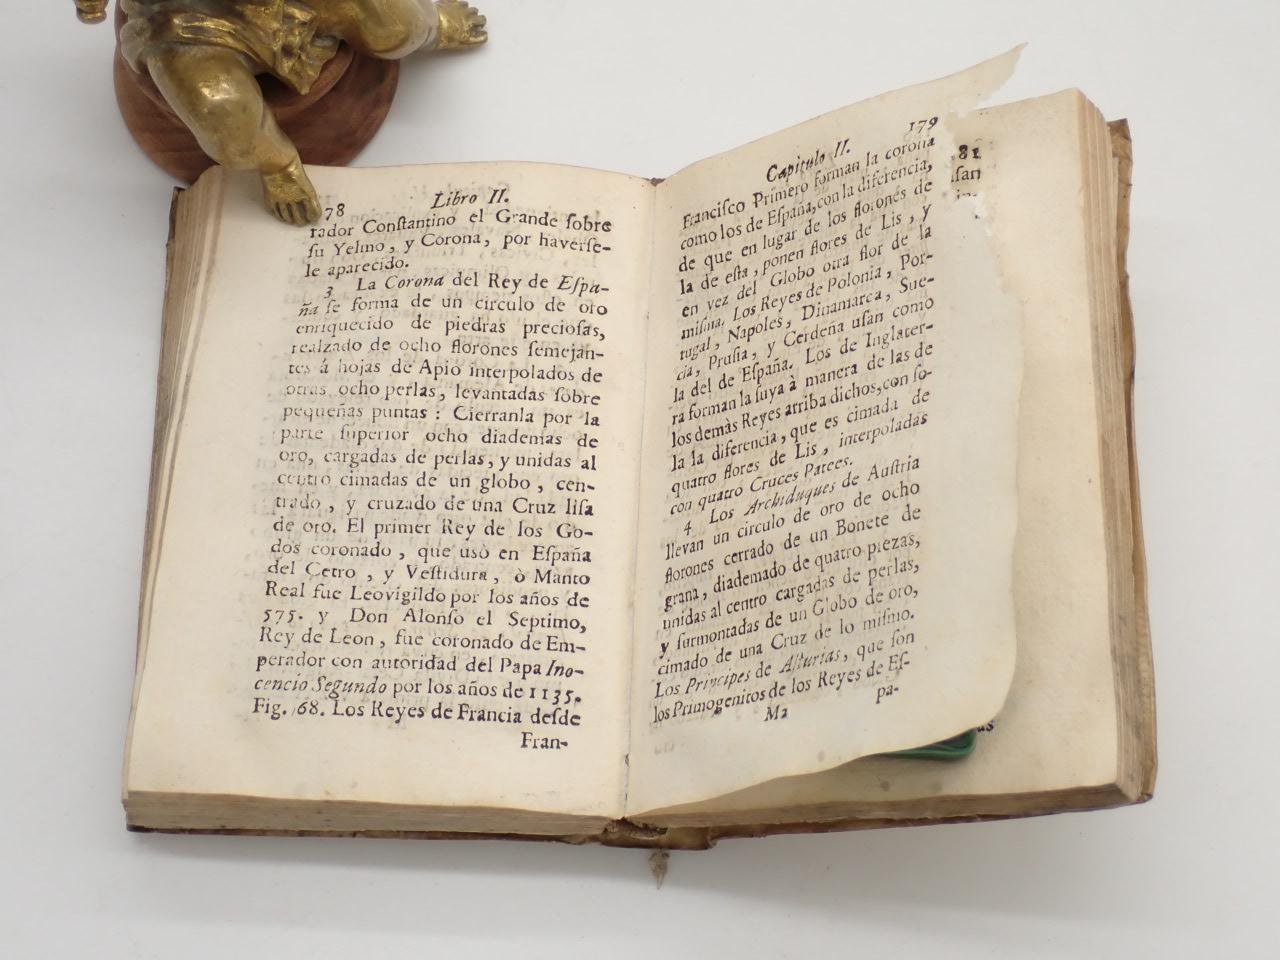 78 Libro II.
rador Conſtantino el Grande ſobre
ſu Yelmo, y Corona, por haverſe-
le aparecido.
3 La Corona del Rey de Eſpa-
ña ſe forma de un circulo de oro
enriquecido de piedras precioſas,
realzado de ocho florones ſemejan-
tes á hojas de Apio interpolados de
otras ocho perlas, levantadas ſobre
pequeñas puntas: Cierranla por la
parte ſuperior ocho diademas de
oro, cargadas de perlas, y unidas al
centro cimadas de un globo, cen-
trado, y cruzado de una Cruz liſa
de oro. El primer Rey de los Go-
dos coronado, que usò en Eſpaña
del Cetro, y Veſtidura, ò Manto
Real fue Leovigildo por los años de
575. y Don Alonſo el Septimo,
Rey de Leon, fue coronado de Em-
perador con autoridad del Papa Ino-
cencio Segundo por los años de 1135.
Fig. 68. Los Reyes de Francia deſde
Fran-
Capitulo II. 179
Franciſco Primero forman la corona
como los de Eſpaña, con la diferencia,
de que en lugar de los florones de
la de eſta, ponen flores de Lis, y
en vez del Globo otra flor de la
miſma. Los Reyes de Polonia, Por-
tugal, Napoles, Dinamarca, Sue-
cia, Pruſia, y Cerdeña uſan como
la del de Eſpaña. Los de Inglater-
ra forman la ſuya à manera de las de
los demàs Reyes arriba dichos, con ſo-
la la diferencia, que es cimada de
quatro flores de Lis, interpoladas
con quatro Cruces Patees.
4 Los Archiduques de Auſtria
llevan un circulo de oro de ocho
florones cerrado de un Bonete de
grana, diademado de quatro piezas,
unidas al centro cargadas de perlas,
y ſurmontadas de un Globo de oro,
cimado de una Cruz de lo miſmo.
Los Principes de Aſturias, que ſon
los Primogenitos de los Reyes de Eſ-
M2 pa-
81
ſan
as